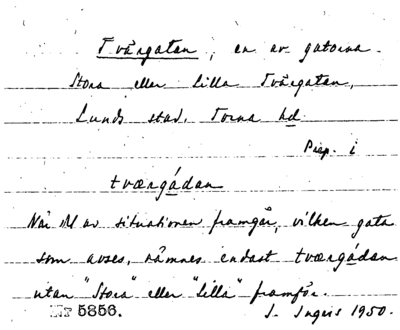 Tvärgatan, en av gatorna
Stora eller Lilla Tvärgatan,
Lunds stad. Torna hd
Prep. i
tværgádan
När det av situationen framgår, vilken gata
som avses, nämnes endast tværgádan
utan "Stora" eller "Lilla" framför.
Nr 5856. I. Ingers 1950.